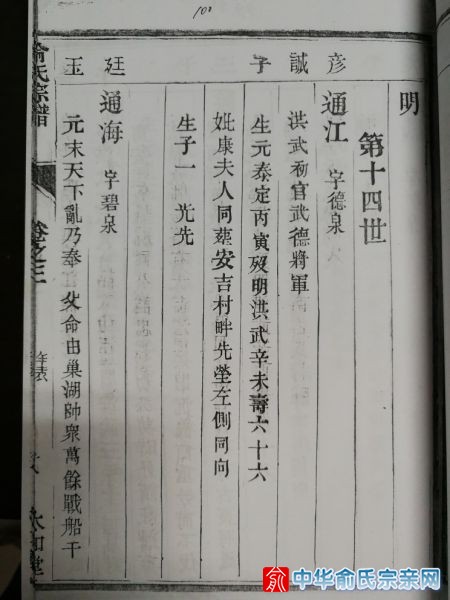 100
明
第十四世
彥 誠 子 廷 玉
通江 字德泉
洪武初官武德將軍
生元泰定丙寅歿明洪武辛未壽六十六
妣康夫人同葬安吉村畔先塋左側同向
生子一 光先
通海 字碧泉
元末天下亂乃奉 父命由巢湖帥衆萬餘戰船千
俞氏宗譜
卷之三
中华俞氏宗亲网